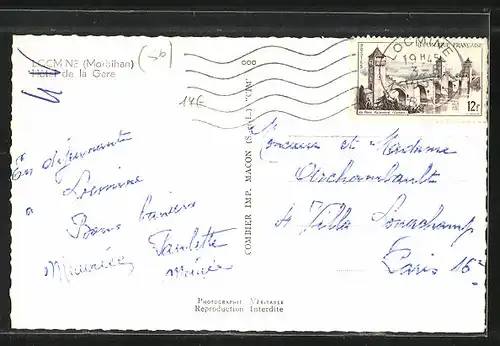 LOCMINÉ (Morbihan)
Hôtel de la Gare
14E
ooo
LOCMINE
19H45
REPUBLIQUE FRANÇAISE
12f
COMBIER IMP. MACON (S.-&-L.) "CIM"
En déjeunant
à Locminé
Bons baisers
Paulette
Maurice
Monsieur et Madame
Archambault
4 Villa Longchamp
Paris 16e
PHOTOGRAPHIE VÉRITABLE
Reproduction Interdite